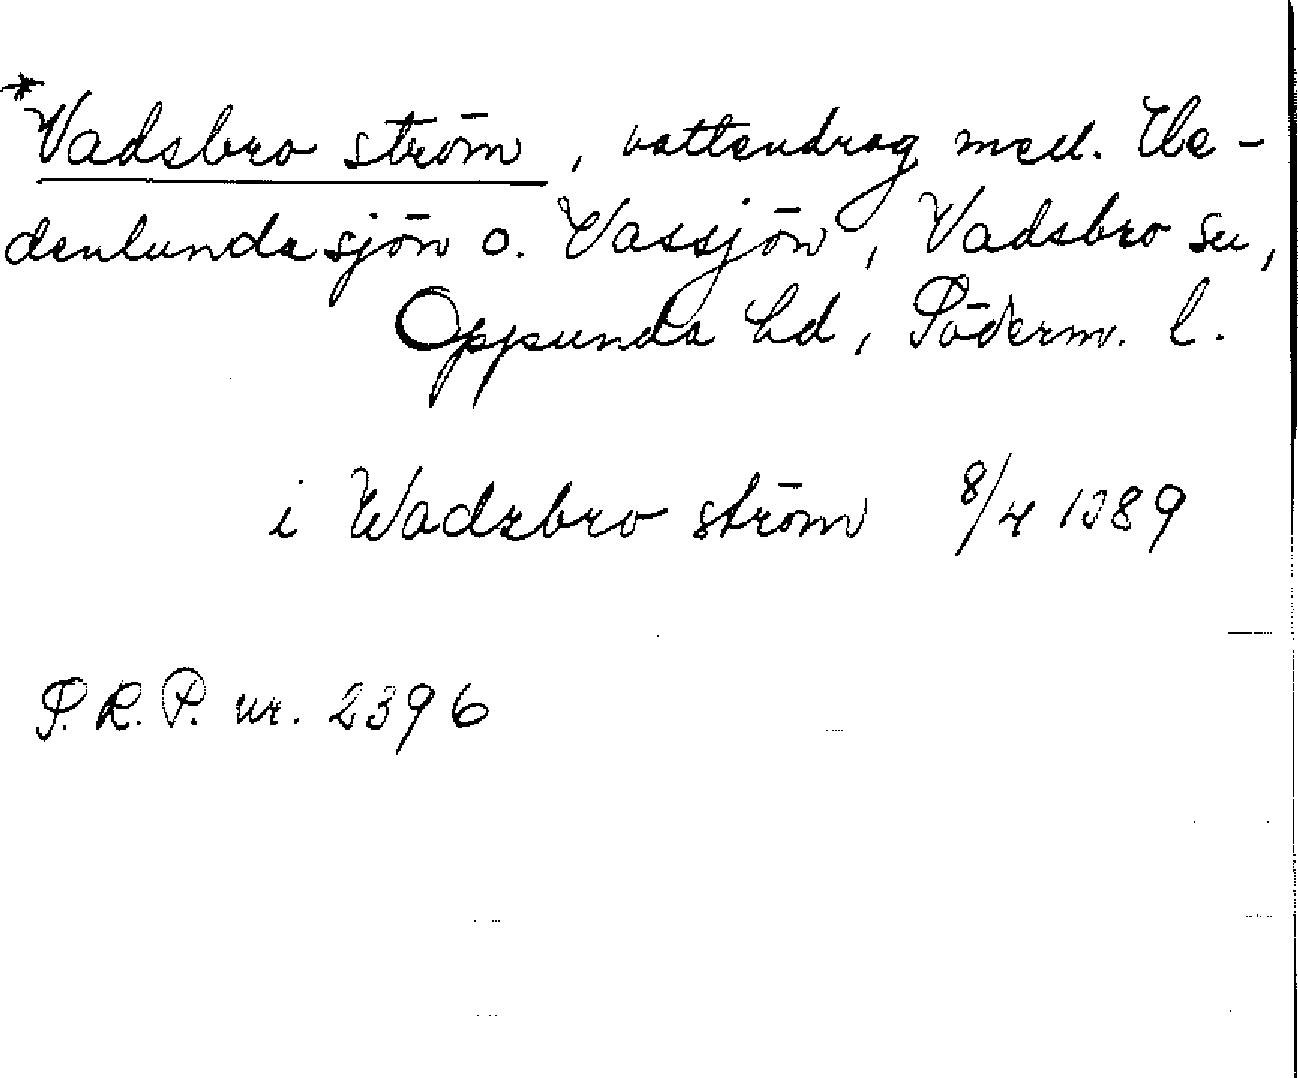 *Vadsbro ström, vattendrag mell. He-
denlundasjön o. Vassjön, Vadsbro sn,
Oppunda hd, Söderm. l.
i Wadzbro ström 8/4 1389
S.R.P. nr. 2396